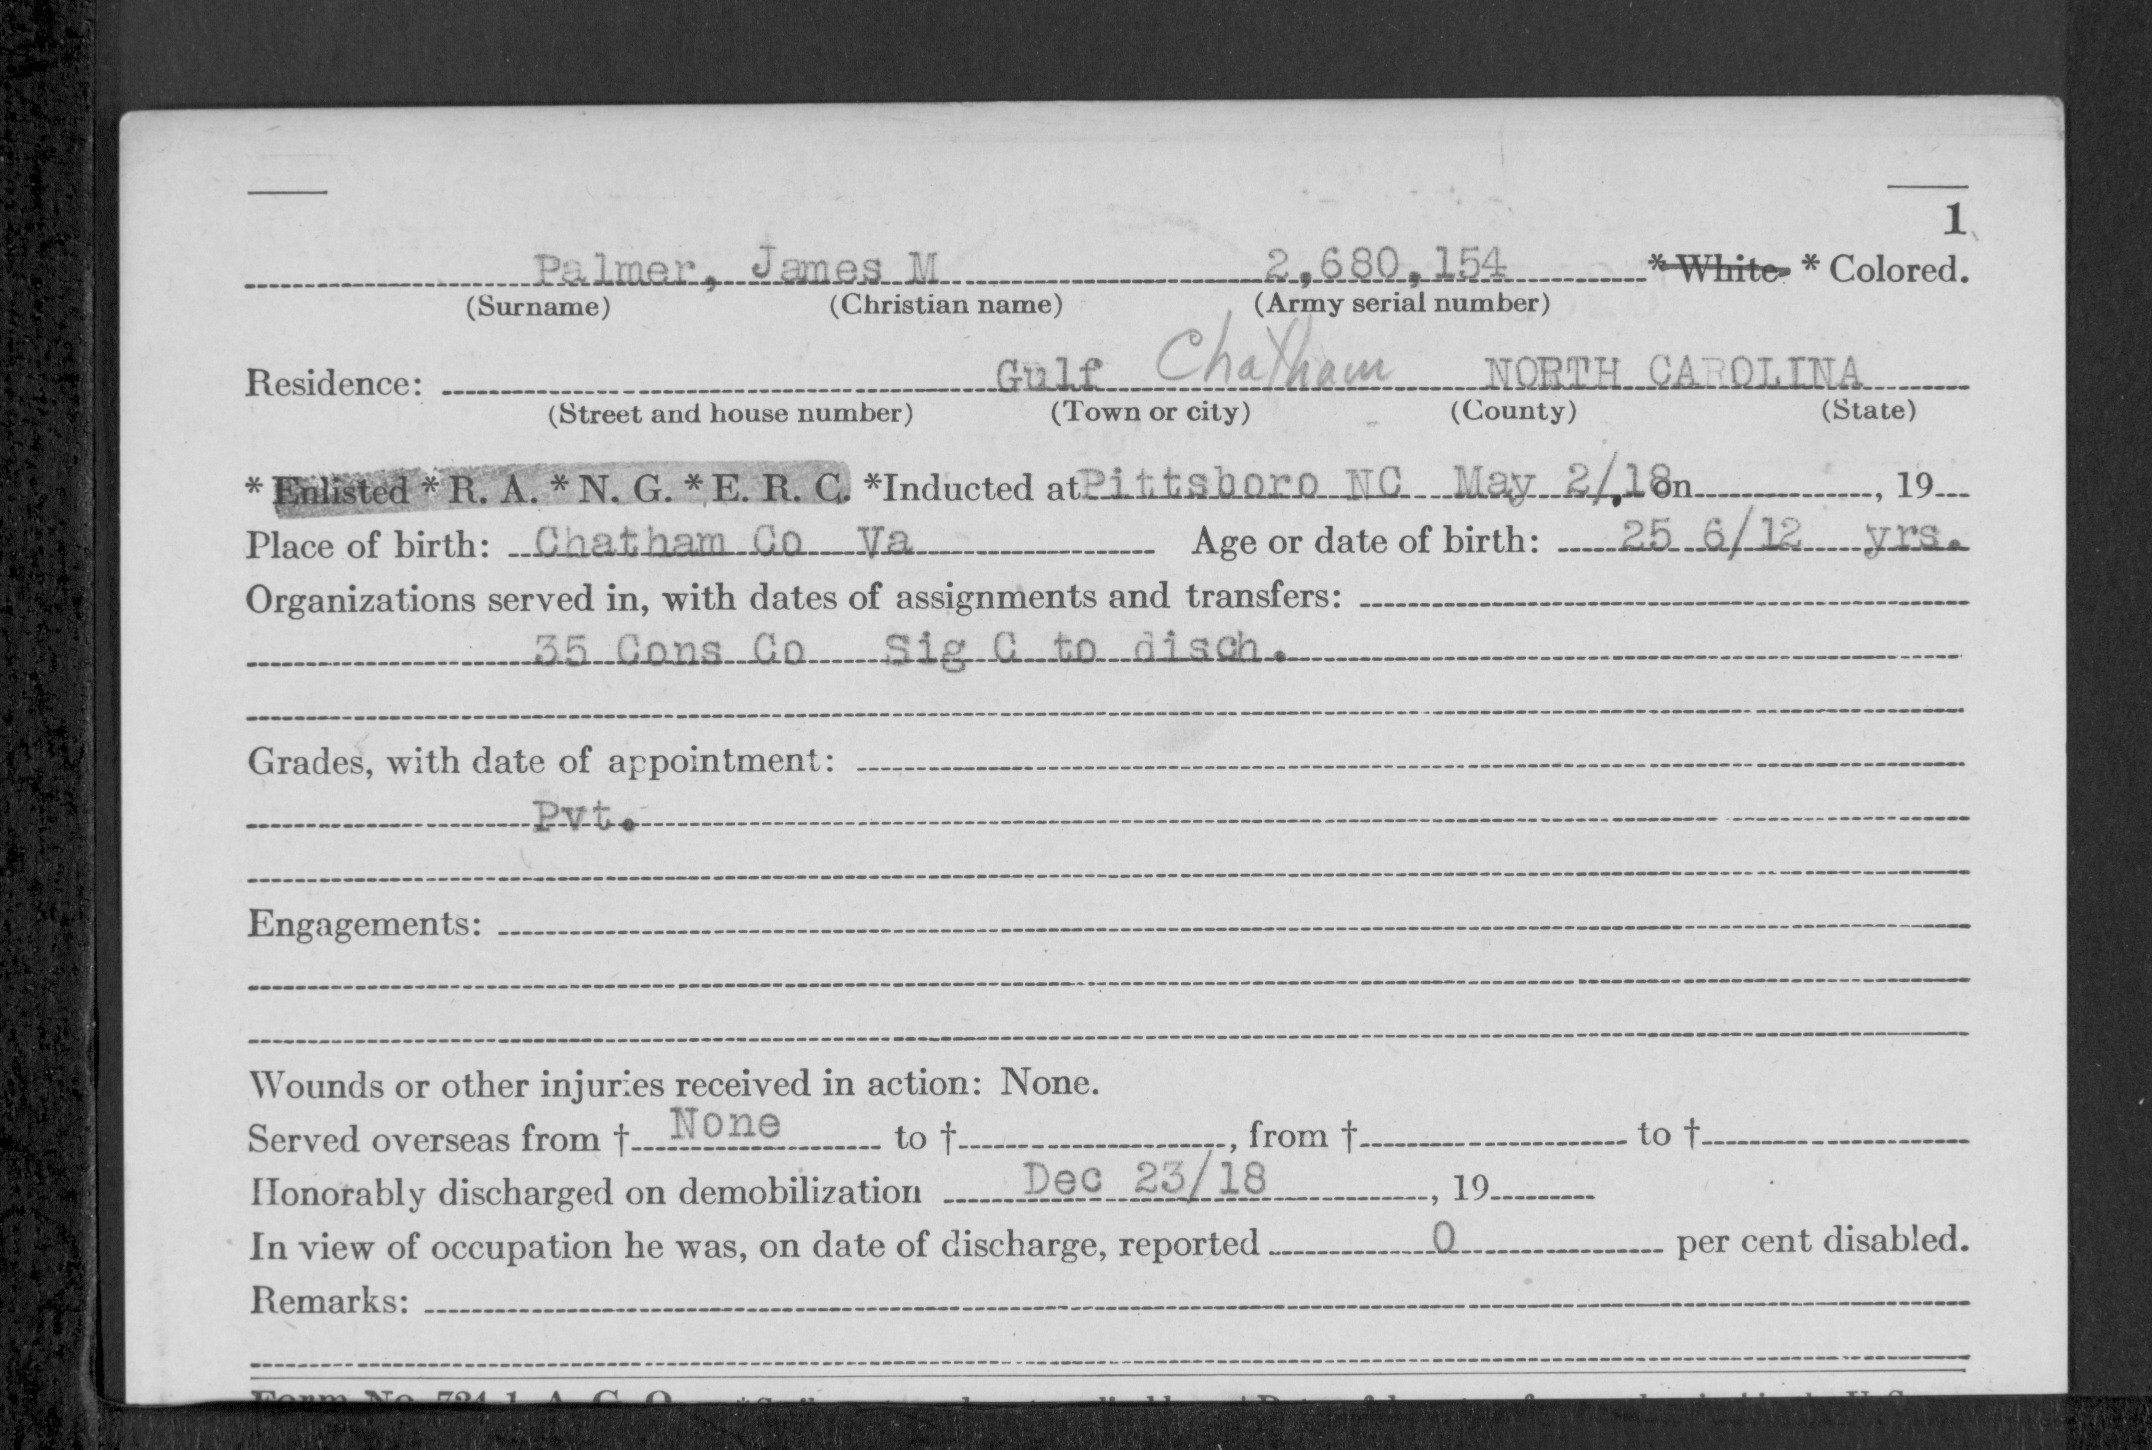 1
Palmer, James M 2,680,154 * White * Colored.
(Surname) (Christian name) (Army serial number)
Residence: Gulf Chatham NORTH CAROLINA
(Street and house number) (Town or city) (County) (State)
* Enlisted * R. A. * N. G. * E. R. C. *Inducted at Pittsboro NC May 2/18 on , 19
Place of birth: Chatham Co Va Age or date of birth: 25 6/12 yrs.
Organizations served in, with dates of assignments and transfers:
35 Cons Co Sig C to disch.
Grades, with date of appointment:
Pvt.
Engagements:
Wounds or other injuries received in action: None.
Served overseas from † None to † , from † to †
Honorably discharged on demobilization Dec 23/18 , 19
In view of occupation he was, on date of discharge, reported 0 per cent disabled.
Remarks:
Form No. 724-1, A. G. O.